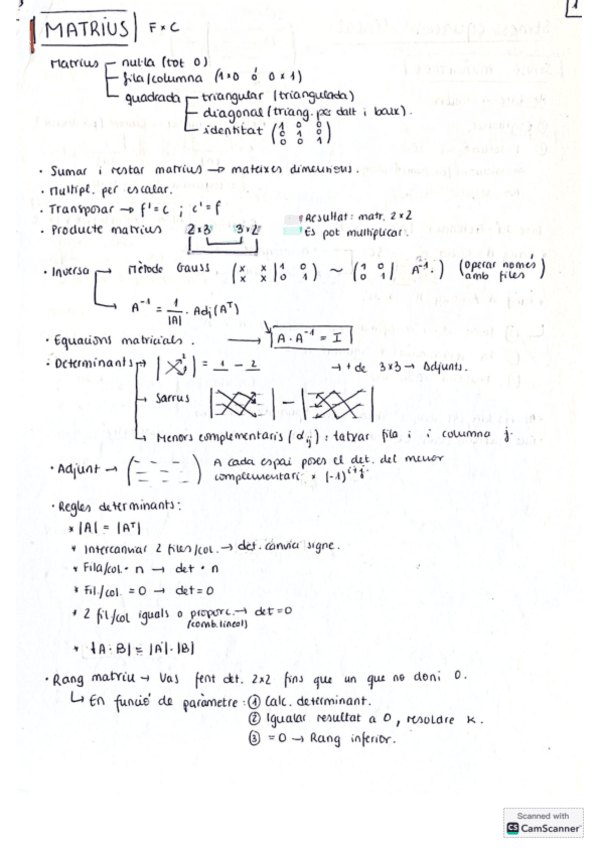 1
MATRIUS F×C
Matrius nul·la (tot 0)
fila/columna (1×0 ó 0×1)
quadrada triangular (triangulada)
diagonal (triang. per dalt i baix).
identitat (1 0 0
0 1 0
0 0 1)
· Sumar i restar matrius → mateixes dimensions.
· Multipl. per escalar.
· Transposar → f'=c ; c'=f
· Producte matrius 2×3 3×2 Resultat: matr. 2×2
És pot multiplicar.
· Inversa Mètode Gauss (x x | 1 0) ~ (1 0 | A⁻¹) (Operar només
x x | 0 1 0 1 amb files)
A⁻¹ = 1/|A| · Adj(Aᵀ)
· Equacions matricials. → A·A⁻¹ = I
· Determinants = 1 - 2 → + de 3×3 → Adjunts.
Sarrus
Menors complementaris (αij): tatxar fila i i columna j.
· Adjunt → A cada espai poses el det. del menor
complementari × (-1)^(i+j).
· Regles determinants:
* |A| = |Aᵀ|
* Intercanviar 2 files/col. → det. canvia signe.
* Fila/col · n → det · n
* Fil/col. = 0 → det = 0
* 2 fil/col iguals o proporc. → det = 0
(comb. lineal)
* |A·B| = |A|·|B|
· Rang matriu → Vas fent det. 2×2 fins que un que no doni 0.
↳ En funció de paràmetre: ① Calc. determinant.
② Igualar resultat a 0, resoldre k.
③ = 0 → Rang inferior.
Scanned with
CS CamScanner